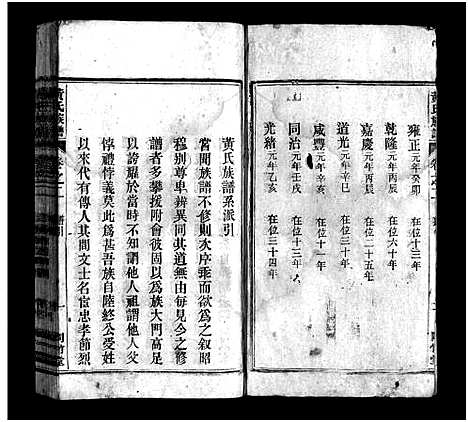 雍正元年癸卯 在位十三年
乾隆元年丙辰 在位六十年
嘉慶元年丙辰 在位二十五年
道光元年辛巳 在位三十年
咸豐元年辛亥 在位十一年
同治元年壬戌 在位十三年
光緒元年乙亥 在位三十四年
黃氏族譜系派引
嘗聞族譜不修則次序乖而欲為之敘昭
穆別尊卑辨異同其道無由每見今之修
譜者多攀援附會彼固以為族大門高足
以誇耀於當時不知謂他人祖謂他人父
悖禮悖義莫此為甚吾族自陸終公受姓
以來代有傳人其間文士名宦忠孝節烈
黃氏族譜